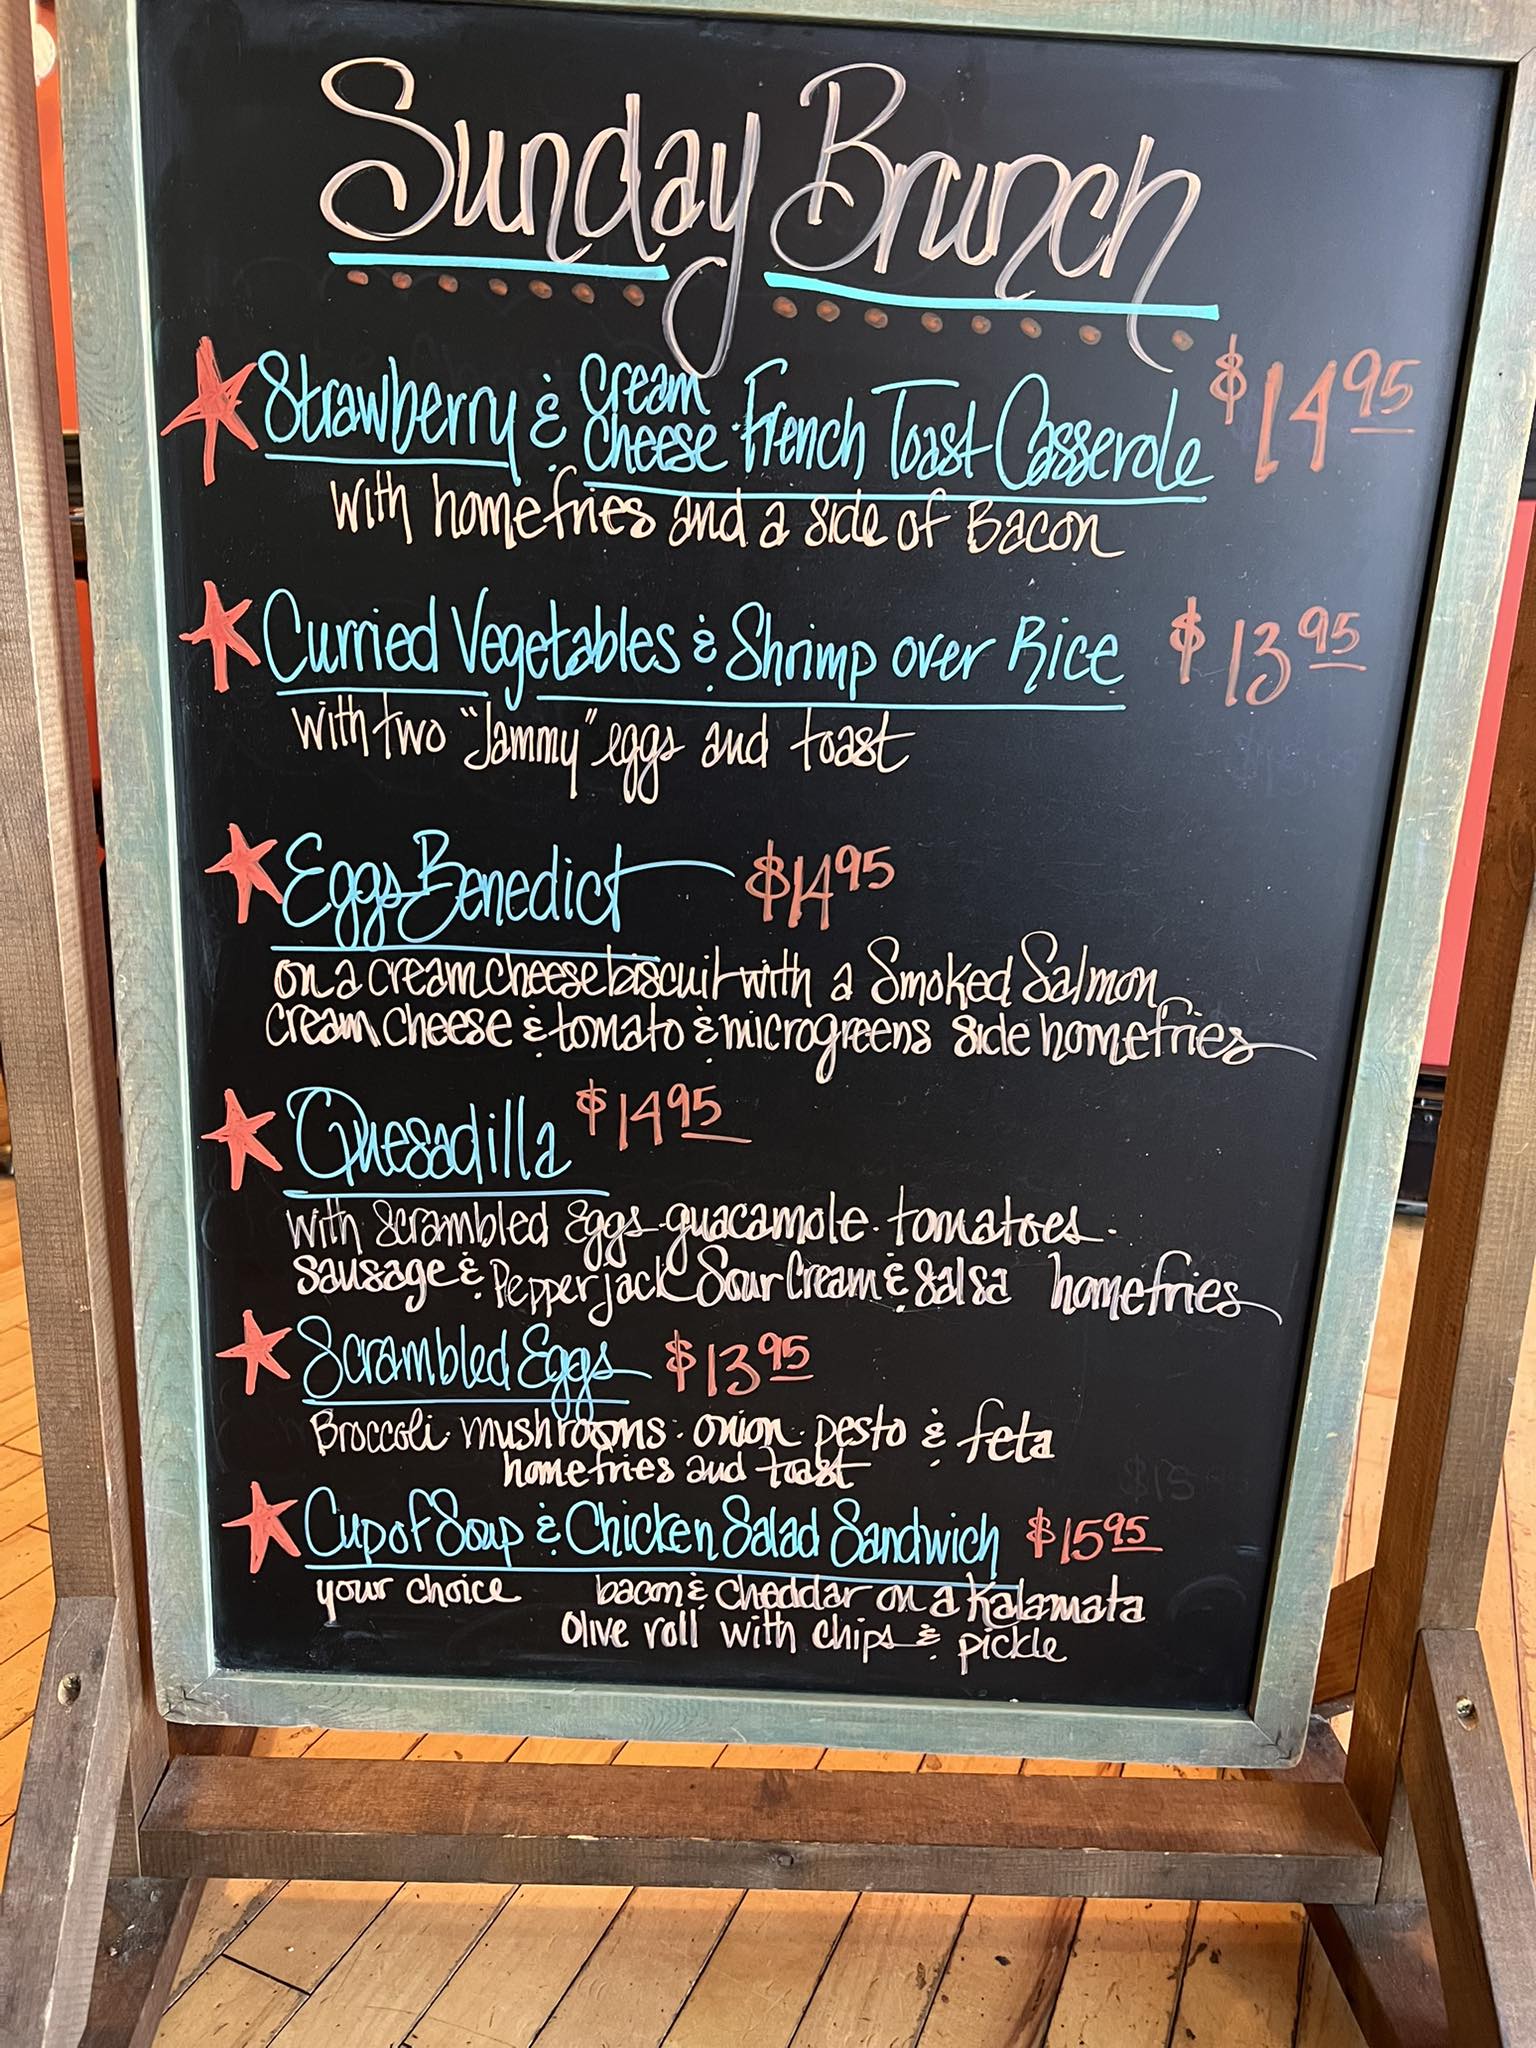 Sunday Brunch
Strawberry & Cream Cheese · French Toast Casserole $14.95
with homefries and a side of Bacon
Curried Vegetables & Shrimp over Rice $13.95
with two "Jammy" eggs and toast
Eggs Benedict $14.95
on a cream cheese biscuit with a Smoked Salmon
cream cheese & tomato & microgreens side homefries
Quesadilla $14.95
with Scrambled Eggs · guacamole · tomatoes ·
sausage & Pepper jack Sour Cream & salsa homefries
Scrambled Eggs $13.95
Broccoli · mushrooms · onion · pesto & feta
homefries and toast
Cup of Soup & Chicken Salad Sandwich $15.95
your choice bacon & cheddar on a Kalamata
Olive roll with chips & pickle